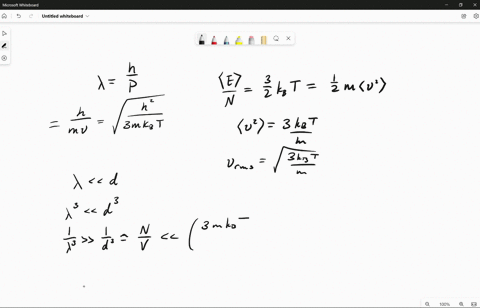 Microsoft Whiteboard
Untitled whiteboard
λ = h/p
= h/mv = √(h²/3mk_BT)
⟨E⟩/N = 3/2 k_B T = 1/2 m⟨v²⟩
⟨v²⟩ = 3k_BT/m
v_rms = √(3k_BT/m)
λ << d
λ³ << d³
1/λ³ >> 1/d³ ≈ N/V << (3mk_B
100%